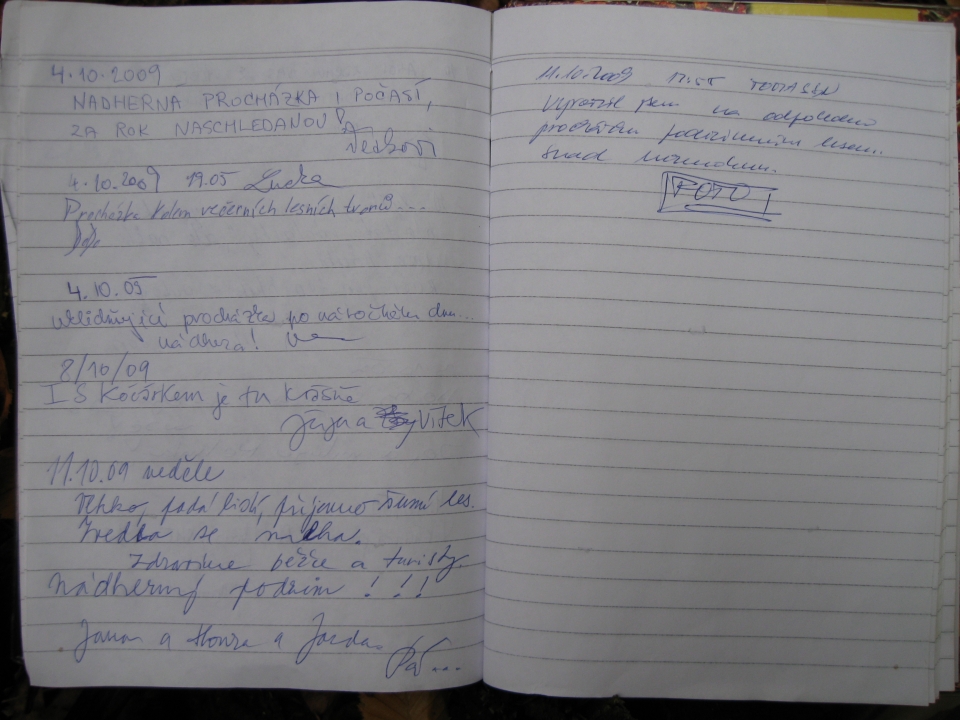 4.10.2009
NADHERNÁ PROCHÁZKA I POČASÍ,
ZA ROK NASCHLEDANOU!
4.10.2009 19.05 Lucka
Procházka kolem večerních lesních tvorů...
4.10.09
uklidňující procházka po náročném dnu...
nádhera!
8/10/09
I S Kočárkem je tu krásně
a VÍTEK
11.10.09 neděle
Vlhko, padá listí, příjemně šumí les.
se
Zdravíme běžce a turisty.
Nádherný podzim !!!
Jana a Honza a
Pa...
11.10.2009
Vyrazil jsem na odpolední
procházku podzimním lesem.
Snad
FOTO